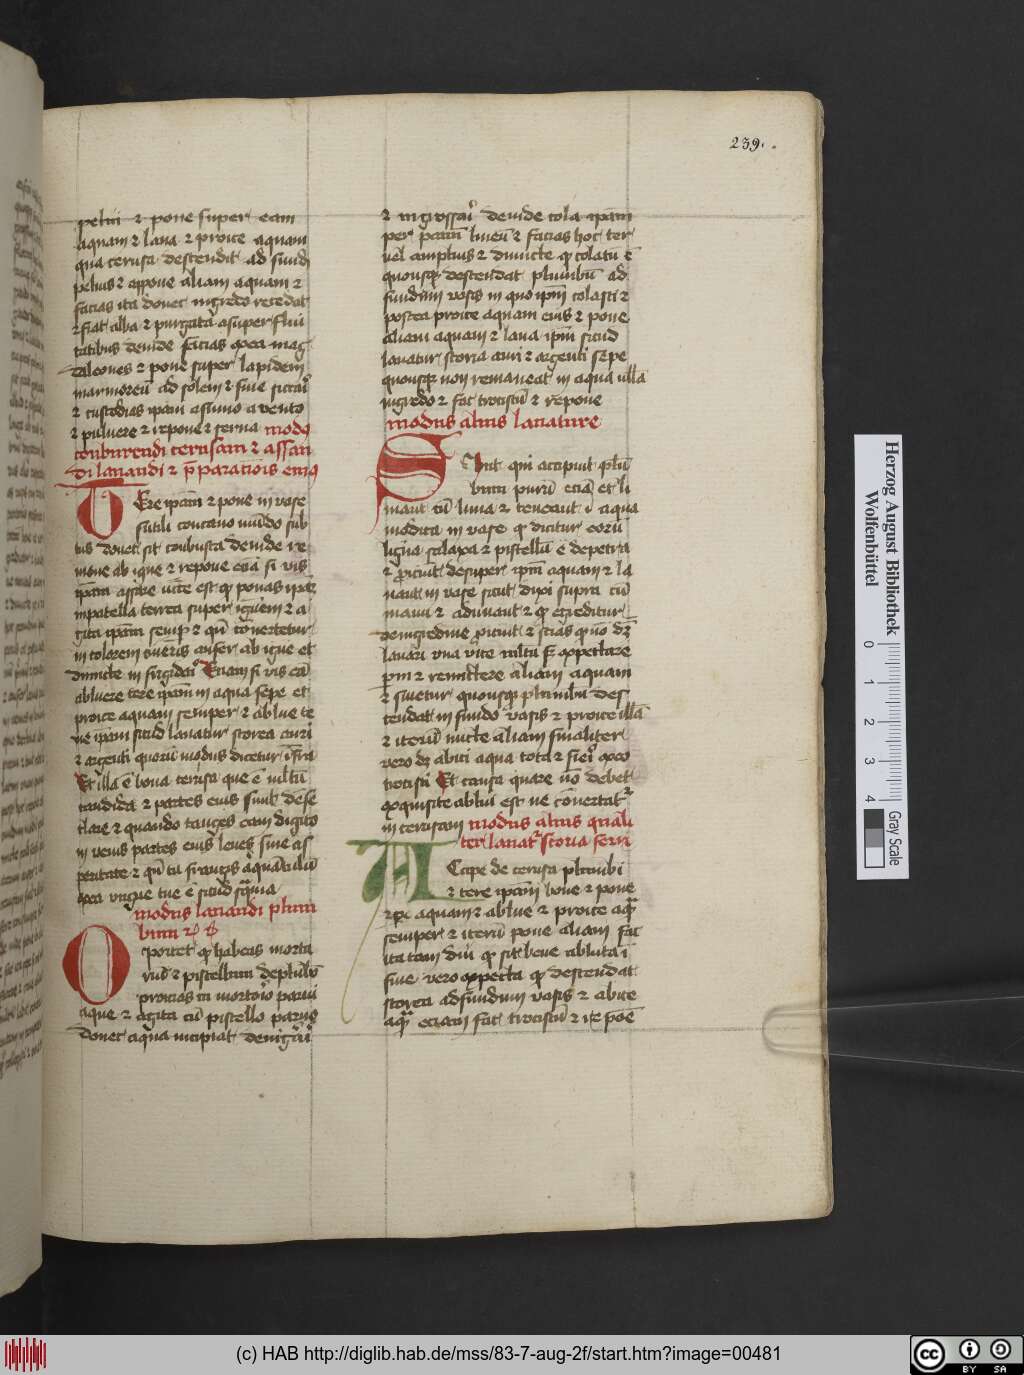 239.
peluí ⁊ pone super eam
aquam ⁊ laua ⁊ proice aquam
qua cerusa descendit ad fundū
peluis ⁊ appone aliam aquam ⁊
facias ita donec nigredo recedat
⁊ fiat alba ⁊ purgata a superflui
tatibus deinde facias ex ea mag
daleones ⁊ pone super lapidem
marmoreū ad solem ⁊ sine siccarī
⁊ custodias ipam a fumo a vento
⁊ puluere ⁊ repone ⁊ serua modꝰ
conburendi cerusam ⁊ assan
di lauandi ⁊ p̄paratiōis eiuꝰ
TEre ipam ⁊ pone in vase
futili concauo mūdo sub
tus donec sit conbusta deinde re
moue ab igne ⁊ repone etiā si vis
ipam assare vice est qꝫ ponas ipaꝫ
inpatella terrea super ignem ⁊ a
gita ipam semp ⁊ qn̄ conuertetur
in colorem cineris aufer ab igne et
dimitte in frigidari Etiam si vis eā
abluere tere ipam in aqua sepe et
proice aquam semper ⁊ ablue le
ue ipam sicud lauatur scorea auri
⁊ argenti quorū modus dicetur ifra
Et illa ē bona cerusa que ē multū
candida ⁊ partes eius sunt dense
clare ⁊ quando tanges eam digito
inuenis partes eius leues sine as
peritate ⁊ qn̄ tu frangis aquātulū
ex ea vngue tue ē sicud sqͣma
modus lauandi plum
bum
OPortet qꝫ habeas morta
riū ⁊ pistellum deplūbo
proicias in mortario parui
aque ⁊ agita cū pistello paruꝫ
donec aqua incipiat denigrari
⁊ ingrossari deinde cola ipam
per pannū lineū ⁊ facias hoc ter
vel amplius ⁊ dimitte qꝫ colatū ē
quousqꝫ descendat plumbū ad
fundum vasis in quo ipm colasti ⁊
postea proice aquam eius ⁊ pone
aliam aquam ⁊ laua ipm sicud
lauatur scoria auri ⁊ argenti sepe
quousqꝫ non remaneat in aqua ulla
nigredo ⁊ fac trociscū ⁊ repone
modus alius lauature
SUnt qui accipiut plū
bum purū etiā et li
mant cū lima ⁊ teneant i aqua
modica in vase qꝫ dicitur eorū
ligua salaxa ⁊ pistellū ē depetra
⁊ ꝓiciut desuper ipm aquam ⁊ la
uant in vase sicut dixi supra cū
manu ⁊ adiuuant ⁊ qꝫ egreditur
denigredine ꝓiciut ⁊ scias qꝫ nō dꝫ
lauari vna vice multū sꝫ expectare
pm ⁊ remittere aliam aquam
⁊ sinetur quousqꝫ plumbū des
cendat in fundo vasis ⁊ proice illā
⁊ iterū mitte aliam finaliter
vero dꝫ abici aqua tota ⁊ fieri ex eo
trocisci Et causa quare nō debet
exquisite ablui est ne conuertatᷣ
in cerusam modus alius quali
ter lauatᷣ scoria ferri
ACcipe de cerusa plumbi
⁊ tere ipam bene ⁊ pone
aquam ⁊ ablue ⁊ proice aqͣ
semper ⁊ iterū pone aliam fac
ita tam diu qꝫ sit bene abluta i
fine vero expecta qꝫ descendat
scorea ad fundum vasis ⁊ abice
aqͣ etiam fac trociscū ⁊ pōe
Herzog August Bibliothek
Wolfenbüttel
0 1 2 3 4
Gray Scale
(c) HAB http://diglib.hab.de/mss/83-7-aug-2f/start.htm?image=00481
cc BY SA